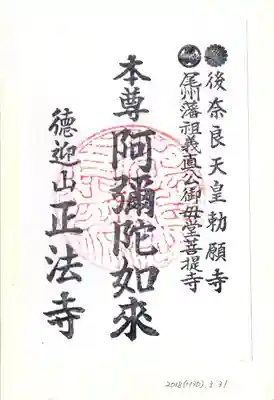 後奈良天皇勅願寺
尾州藩祖義直公御母堂菩提寺
本尊 阿彌陀如來
徳迎山 正法寺
2018(H30). 3. 31